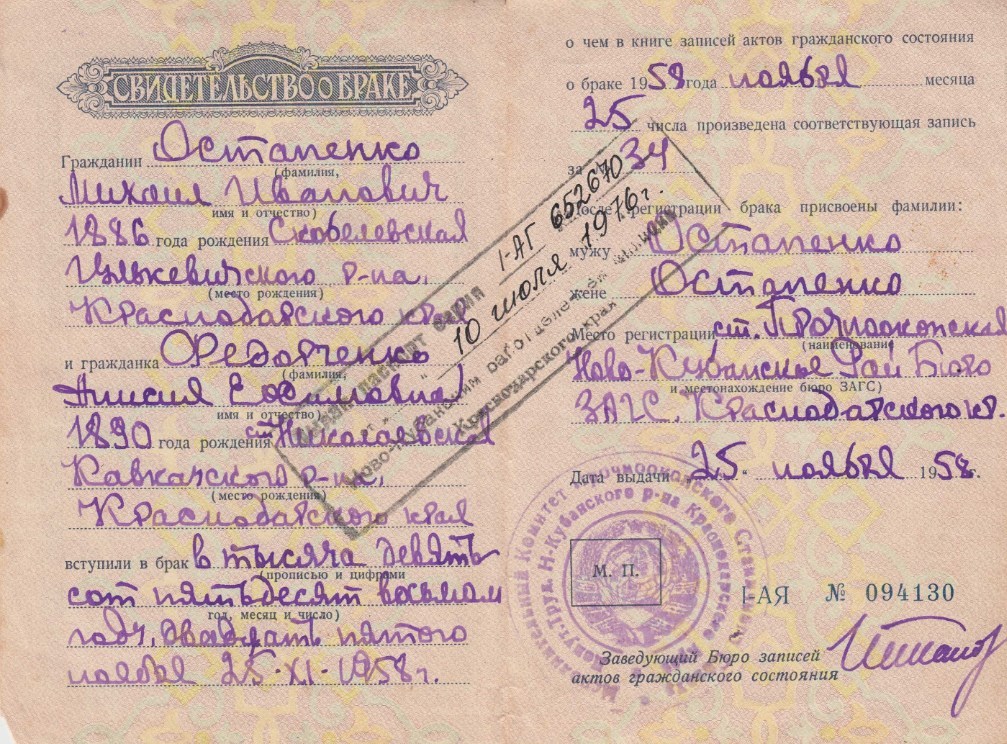 СВИДЕТЕЛЬСТВО О БРАКЕ
Гражданин Остапенко
(фамилия,
Михаил Иванович
имя и отчество)
1886 года рождения Скобелевская
р-на,
(место рождения)
Краснодарского края
и гражданка Федорченко
(фамилия,
Анисия Ефимовна
имя и отчество)
1890 года рождения ст. Николаевская
Кавказского р-на,
(место рождения)
Краснодарского края
вступили в брак в тысяча девять
(прописью и цифрами
сот пятьдесят восьмом
год, месяц и число)
году, двадцать пятого
ноября 25-XI-1958г.
о чем в книге записей актов гражданского состояния
о браке 1958 года ноября месяца
25 числа произведена соответствующая запись
за № 34
После регистрации брака присвоены фамилии:
мужу Остапенко
жене Остапенко
Место регистрации ст. Прочноокопская
(наименование
Ново-Кубанское Рай Бюро
и местонахождение бюро ЗАГС)
ЗАГС, Краснодарского кр.
Дата выдачи 25. ноября 1958г.
М. П.
I-АЯ № 094130
Заведующий Бюро записей
актов гражданского состояния
паспорт серия I-АГ 652670
от " 10 июля 1976г.
Ново-Кубанским
Краснодарского края
Исполнительный Комитет Прочноокопского
Н-Кубанского р-на Краснодарского